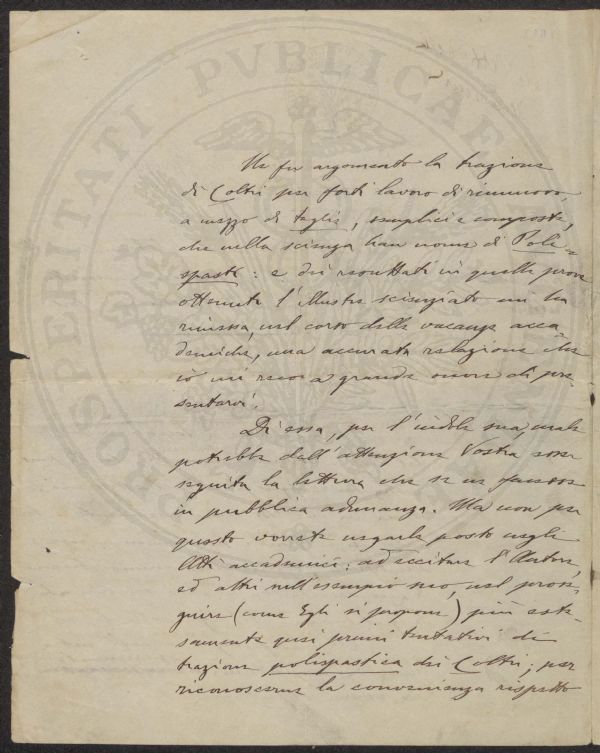 PROSPERITATI PVBLICAE
Ne fu argomento la trazione
di Coltri per forti lavoro di rinnuovo,
a mezzo di taglie, semplici e composte,
che nella scienza han nome di Poli=
spasti: e dei resultati in quelle prove
ottenuti l'illustre scienziato mi ha
rimessa, nel corso delle vacanze acca=
demiche, una accurata relazione che
io mi reco a grande onore di pre=
sentarvi.
Di essa, per l'indole sua, male
potrebbe dall'attenzione Vostra esser
seguita la lettura che se ne facesse
in pubblica adunanza. Ma non per
questo vorrete negarle posto negli
Atti accademici; ad eccitare l'Autore,
ed altri nell'esempio suo, nel prose=
guire (come Egli si propone) più este=
samente quei primi tentativi di
trazione polispastica dei Coltri, per
riconoscerne la convenienza rispetto